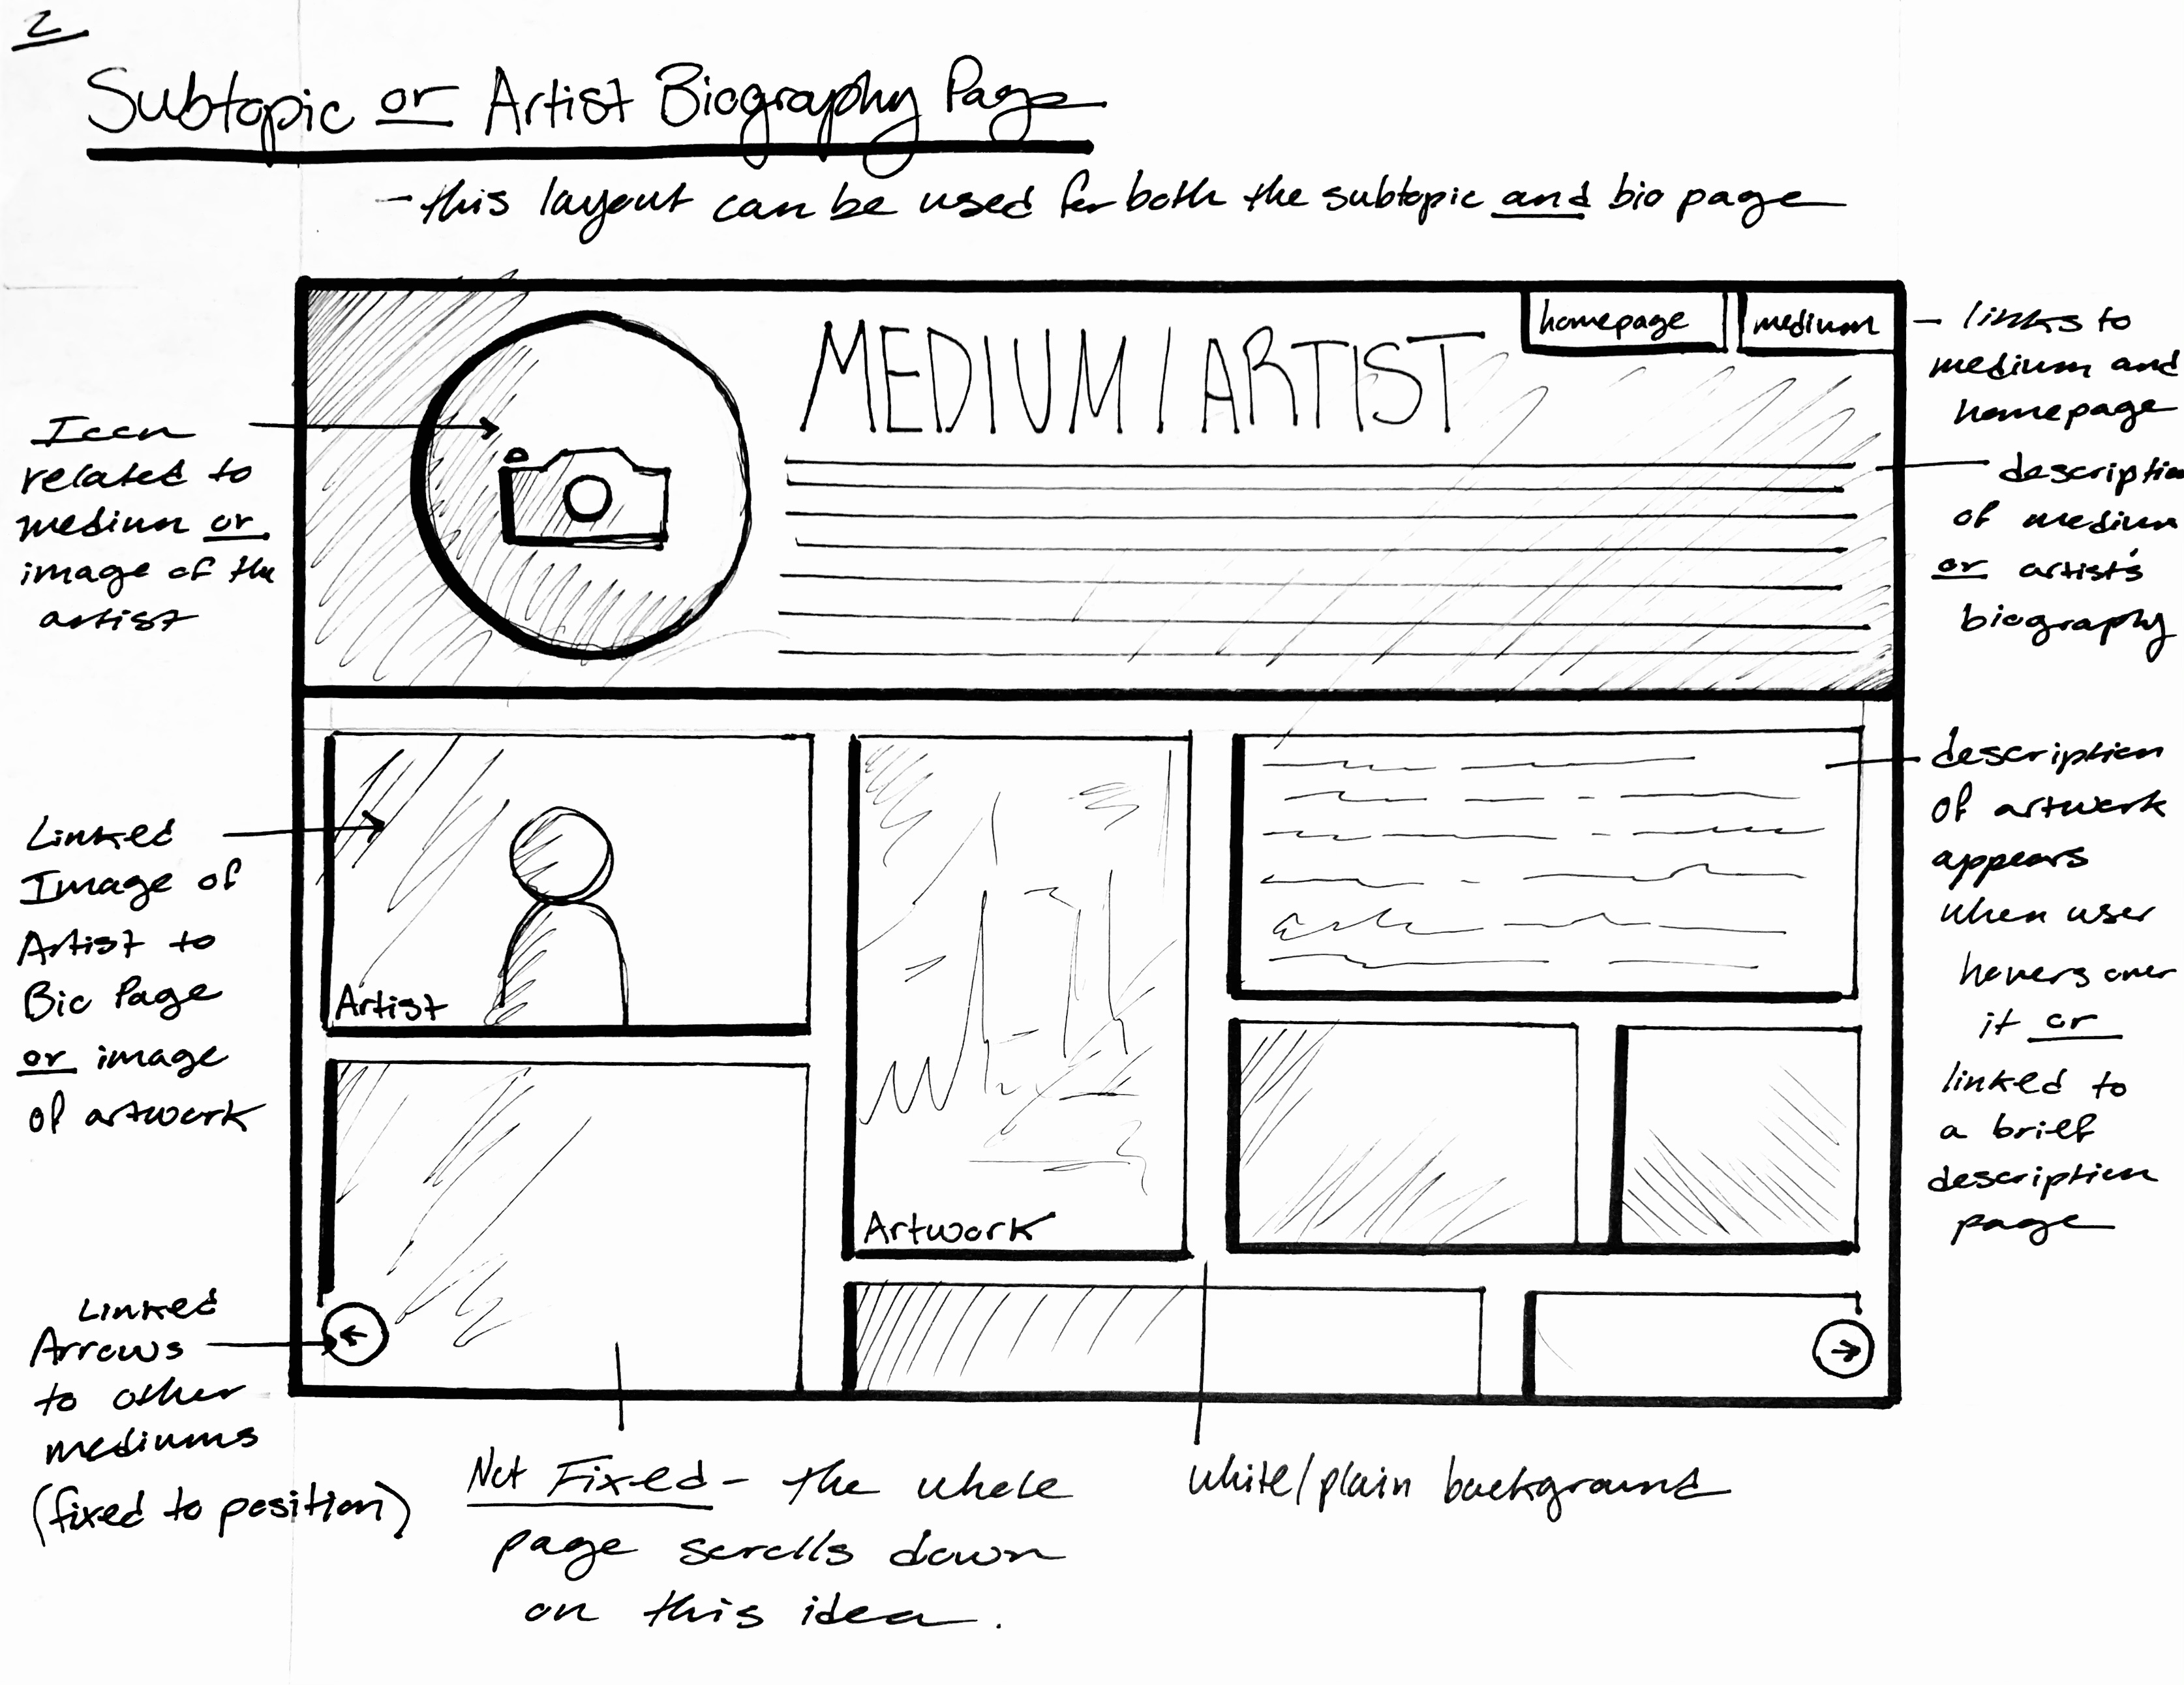 2
Subtopic or Artist Biography Page
- this layout can be used for both the subtopic and bio page
homepage
medium
MEDIUM/ARTIST
- links to
medium and
homepage
Icon
related to
medium or
image of the
artist
description
of medium
or artist's
biography
Linked
Image of
Artist to
Bio Page
or image
of artwork
Artist
Artwork
description
of artwork
appears
when user
hovers over
it or
linked to
a brief
description
page
Linked
Arrows
to other
mediums
(fixed to position)
Not Fixed - the whole
page scrolls down
on this idea.
white/plain background